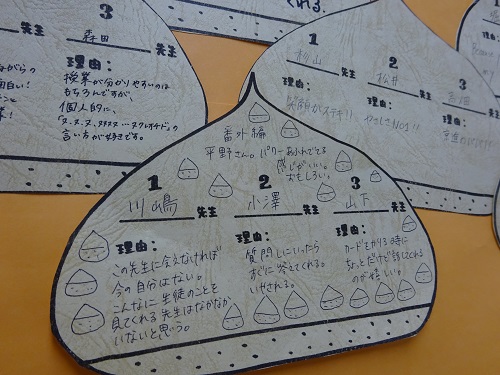 くれる。
3
森田 先生
理由：
授業が分かりやすいのは
もちろんですが、
個人的に、
言い方が好きです。
1
杉山
理由：
笑顔がステキ!!
2
松井
理由：
やさしさNO1!!
3
理由：
番外編
平野さん。パワーあふれてる
感じがいい。
おもしろい。
1
川嶋 先生
理由：
この先生に会えなければ
今の自分はない。
こんなに生徒のことを
見てくれる先生はなかなか
いないと思う。
2
小澤 先生
理由：
質問しにいったら
すぐに答えてくれる。
いやされる。
3
山下 先生
理由：
カードをかりる時に
ちょっとだけど話してくれる
のが嬉しい。